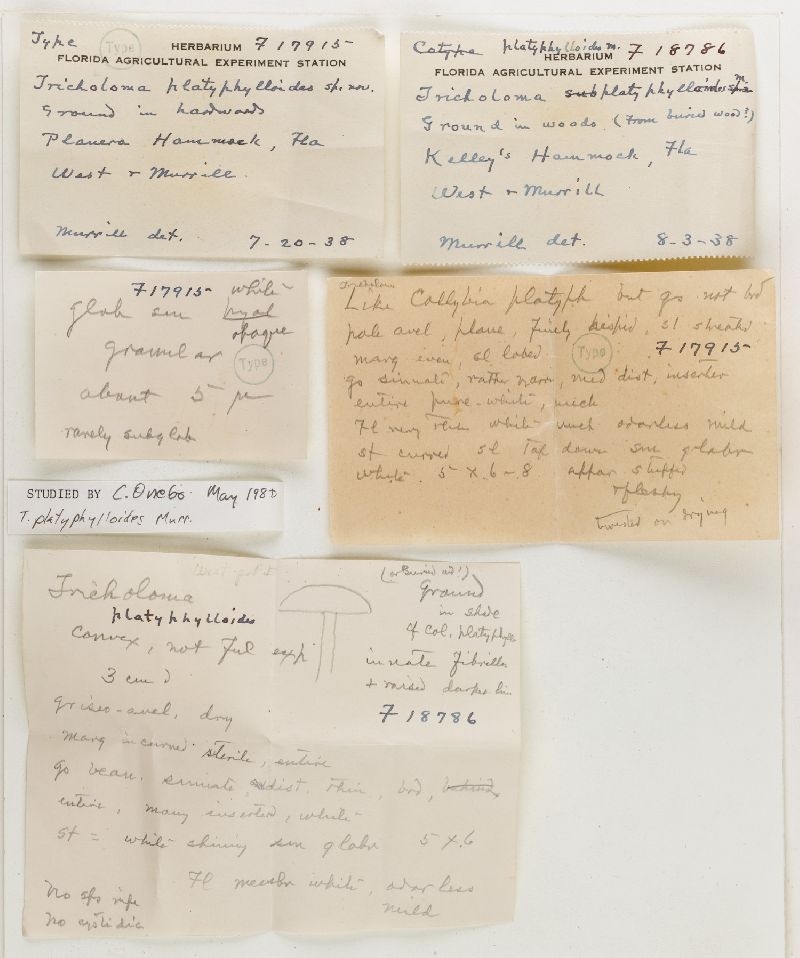 Type Type HERBARIUM F 17915
FLORIDA AGRICULTURAL EXPERIMENT STATION
Tricholoma platyphylloides sp. nov.
Ground in hardwoods
Planera Hammock, Fla
West & Murrill.
Murrill det. 7-20-38
Cotype platyphylloides m. HERBARIUM F 18786
FLORIDA AGRICULTURAL EXPERIMENT STATION
Tricholoma subplatyphylloides m
Ground in woods. (From buried wood?)
Kelley's Hammock, Fla
West & Murrill
Murrill det. 8-3-38
F17915 white
glob sm hyal
opaque
granular Type
about 5 µ
rarely subglob
Tricholoma
Like Collybia platyph but gs not brd
pale avel, plane, finely hispid, sl streaked
marg even, sl lobed Type F 17915
gs sinuate, rather narr, med dist, inserted
entire pure-white, thick
Fl very thin white odorless mild
st curved sl tap down sm glabr
white 5 x .6-8 appar stuffed
& fleshy
twisted on drying
STUDIED BY C. Ovrebo May 1980
T. platyphylloides Murr.
Tricholoma
platyphylloides
convex, not ful exp
3 cm
griseo-avel, dry
marg incurved sterile, entire
gs sinuate, dist, thin, brd, behind
entire, many inserted, white
st = white shining sm glabr 5 x .6
Fl white, odorless
mild
No sps ripe
No cystidia
(or buried wd?)
Ground
in shde
of Col. platyphylla
innate fibrillo
+ raised darker lin
F 18786